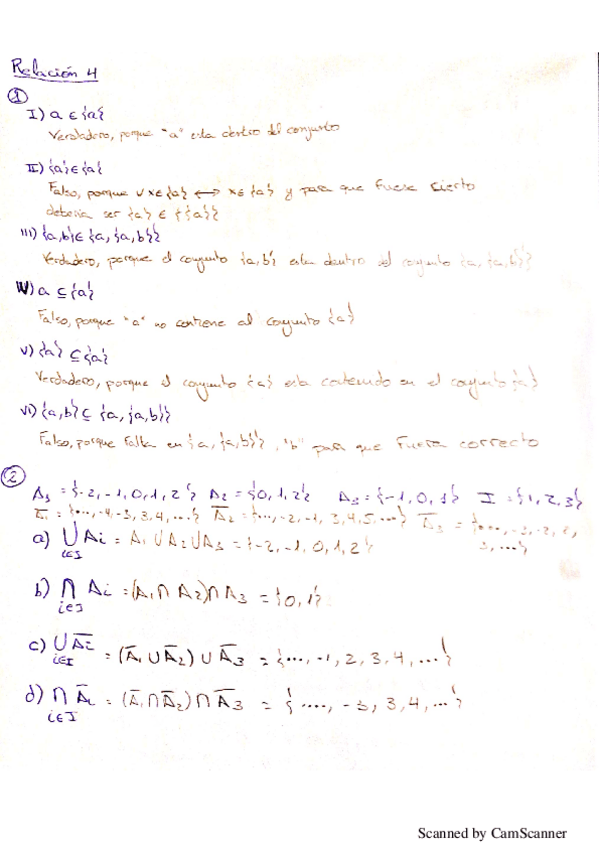 Relación 4
1
I) a ∈ {a}
Verdadero, porque "a" esta dentro del conjunto
II) {a} ∈ {a}
Falso, porque ∪ x ∈ {a} ↔ x ∈ {a} y para que fuese cierto
debería ser {a} ∈ {{a}}
III) {a,b} ∈ {a, {a,b}}
Verdadero, porque el conjunto {a,b} esta dentro del conjunto {a, {a,b}}
IV) a ⊆ {a}
Falso, porque "a" no contiene al conjunto {a}
V) {a} ⊆ {a}
Verdadero, porque el conjunto {a} esta contenido en el conjunto {a}
VI) {a,b} ⊆ {a, {a,b}}
Falso, porque falta en {a, {a,b}}, "b" para que fuera correcto
2
A₁ = {-2, -1, 0, 1, 2} A₂ = {0, 1, 2} A₃ = {-1, 0, 1} I = {1, 2, 3}
= {..., -4, -3, 3, 4, ...} A̅₂ = {..., -2, -1, 3, 4, 5, ...} A̅₃ = {..., -3, -2, 2,
3, ...}
a) ∪ Ai = A₁ ∪ A₂ ∪ A₃ = {-2, -1, 0, 1, 2}
i∈I
b) ∩ Ai = (A₁ ∩ A₂) ∩ A₃ = {0, 1}
i∈I
c) ∪ A̅i = (A̅₁ ∪ A̅₂) ∪ A̅₃ = {..., -1, 2, 3, 4, ...}
i∈I
d) ∩ A̅i = (A̅₁ ∩ A̅₂) ∩ A̅₃ = {...., -3, 3, 4, ...}
i∈I
Scanned by CamScanner